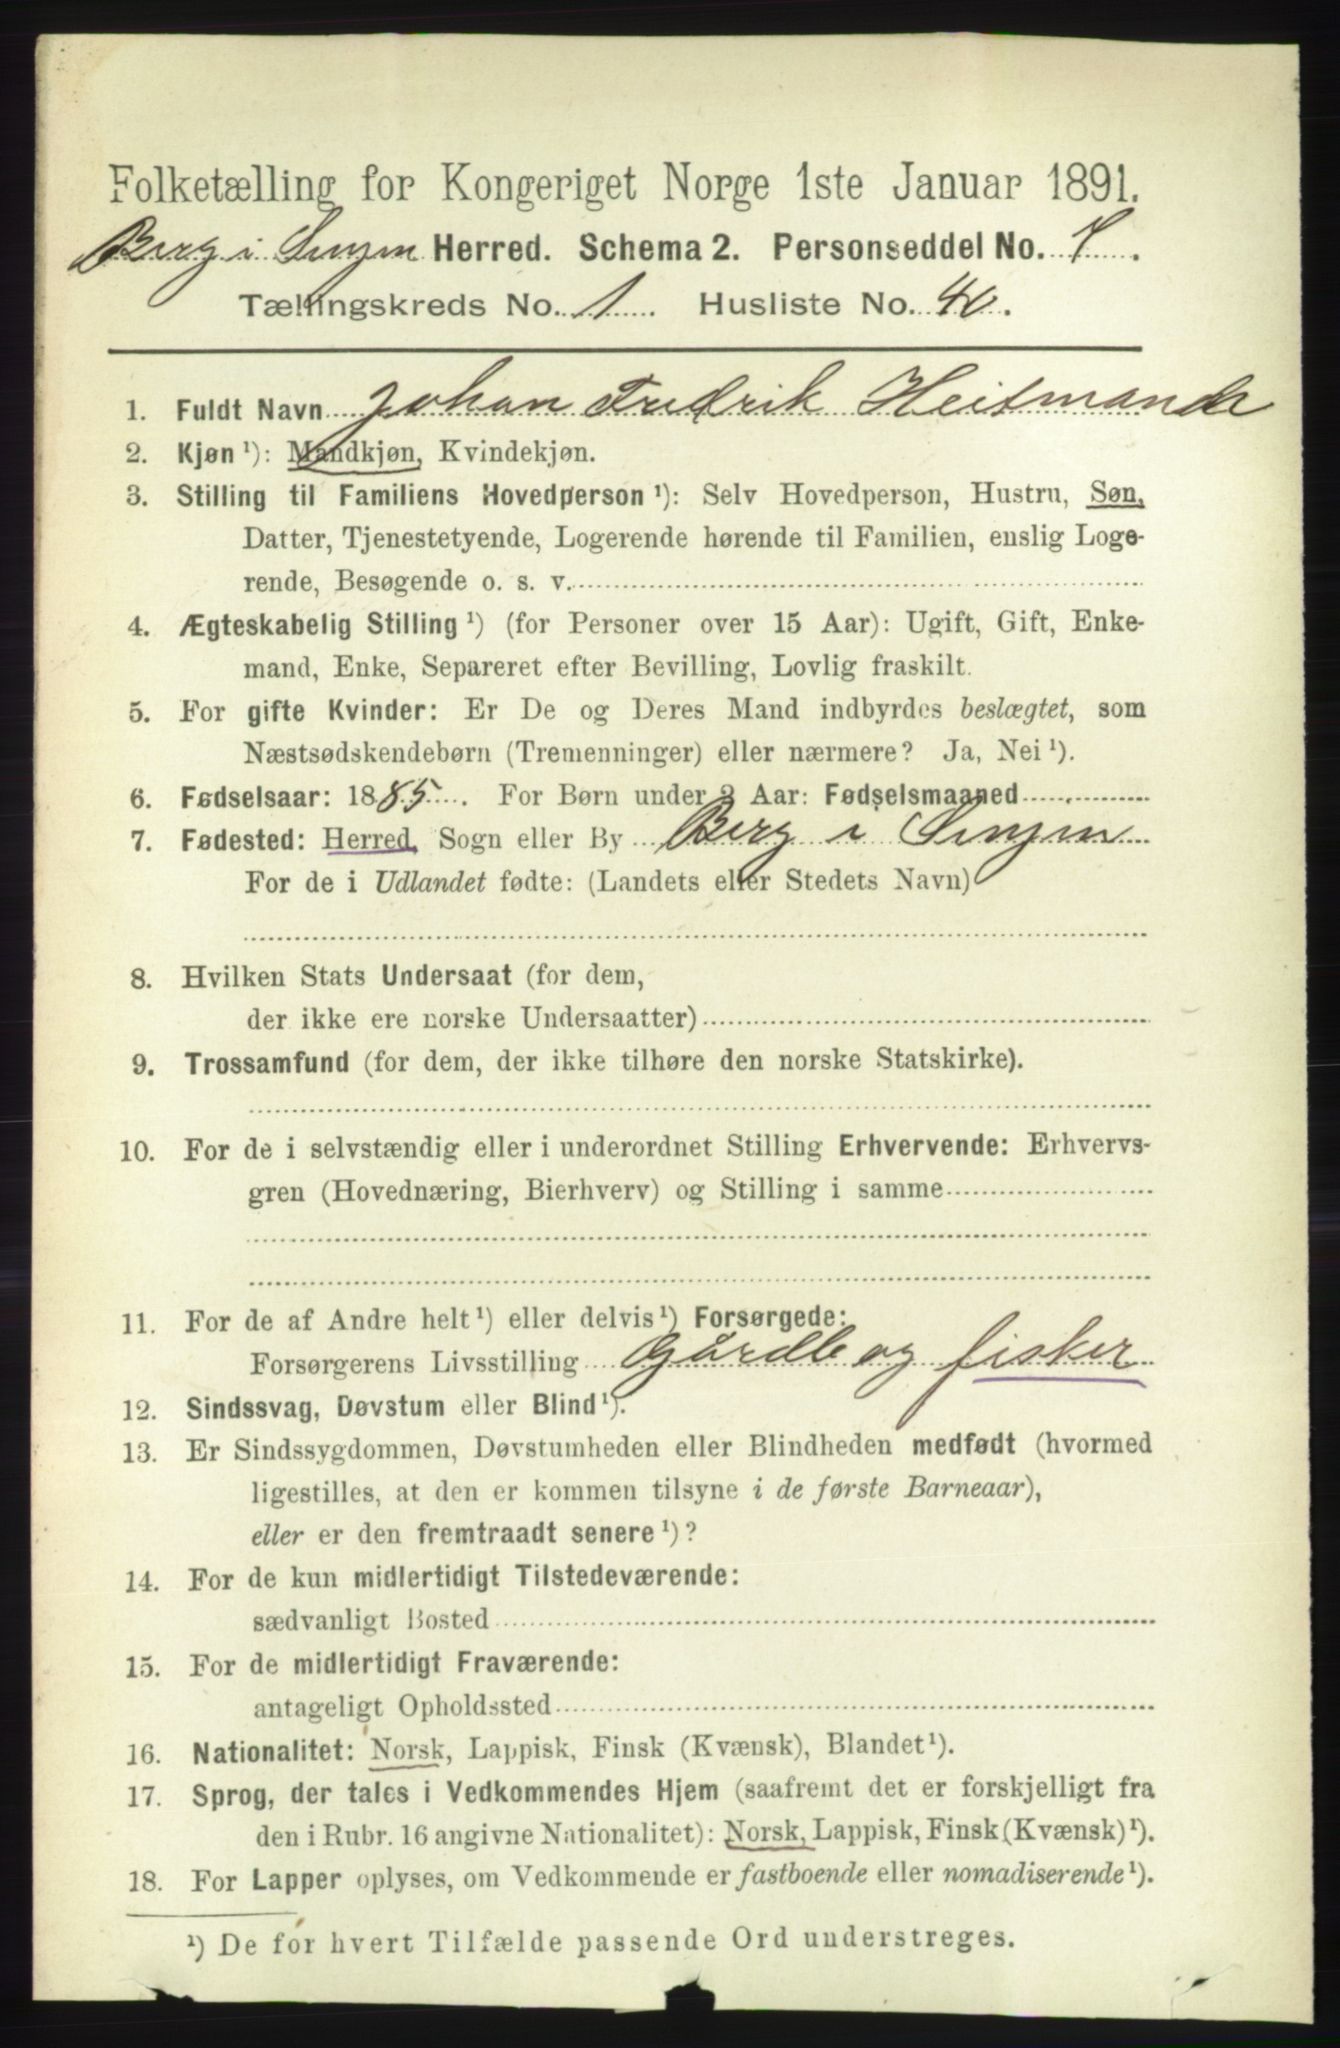 Folketælling for Kongeriget Norge 1ste Januar 1891.
Berg i Senjen Herred. Schema 2. Personseddel No. 7.
Tællingskreds No. 1. Husliste No. 40.
1. Fuldt Navn Johan Fredrik Heitmann
2. Kjøn ¹): Mandkjøn, Kvindekjøn.
3. Stilling til Familiens Hovedperson ¹): Selv Hovedperson, Hustru, Søn,
Datter, Tjenestetyende, Logerende hørende til Familien, enslig Loge-
rende, Besøgende o. s. v.
4. Ægteskabelig Stilling ¹) (for Personer over 15 Aar): Ugift, Gift, Enke-
mand, Enke, Separeret efter Bevilling, Lovlig fraskilt.
5. For gifte Kvinder: Er De og Deres Mand indbyrdes beslægtet, som
Næstsødskendebørn (Tremenninger) eller nærmere? Ja, Nei ¹).
6. Fødselsaar: 1885. For Børn under 2 Aar: Fødselsmaaned
7. Fødested: Herred, Sogn eller By Berg i Senjen
For de i Udlandet fødte: (Landets eller Stedets Navn)
8. Hvilken Stats Undersaat (for dem,
der ikke ere norske Undersaatter)
9. Trossamfund (for dem, der ikke tilhøre den norske Statskirke).
10. For de i selvstændig eller i underordnet Stilling Erhvervende: Erhvervs-
gren (Hovednæring, Bierhverv) og Stilling i samme
11. For de af Andre helt ¹) eller delvis ¹) Forsørgede:
Forsørgerens Livsstilling Gårdb og fisker
12. Sindssvag, Døvstum eller Blind ¹).
13. Er Sindssygdommen, Døvstumheden eller Blindheden medfødt (hvormed
ligestilles, at den er kommen tilsyne i de første Barneaar),
eller er den fremtraadt senere ¹)?
14. For de kun midlertidigt Tilstedeværende:
sædvanligt Bosted
15. For de midlertidigt Fraværende:
antageligt Opholdssted
16. Nationalitet: Norsk, Lappisk, Finsk (Kvænsk), Blandet ¹).
17. Sprog, der tales i Vedkommendes Hjem (saafremt det er forskjelligt fra
den i Rubr. 16 angivne Nationalitet): Norsk, Lappisk, Finsk (Kvænsk) ¹).
18. For Lapper oplyses, om Vedkommende er fastboende eller nomadiserende ¹).
¹) De for hvert Tilfælde passende Ord understreges.